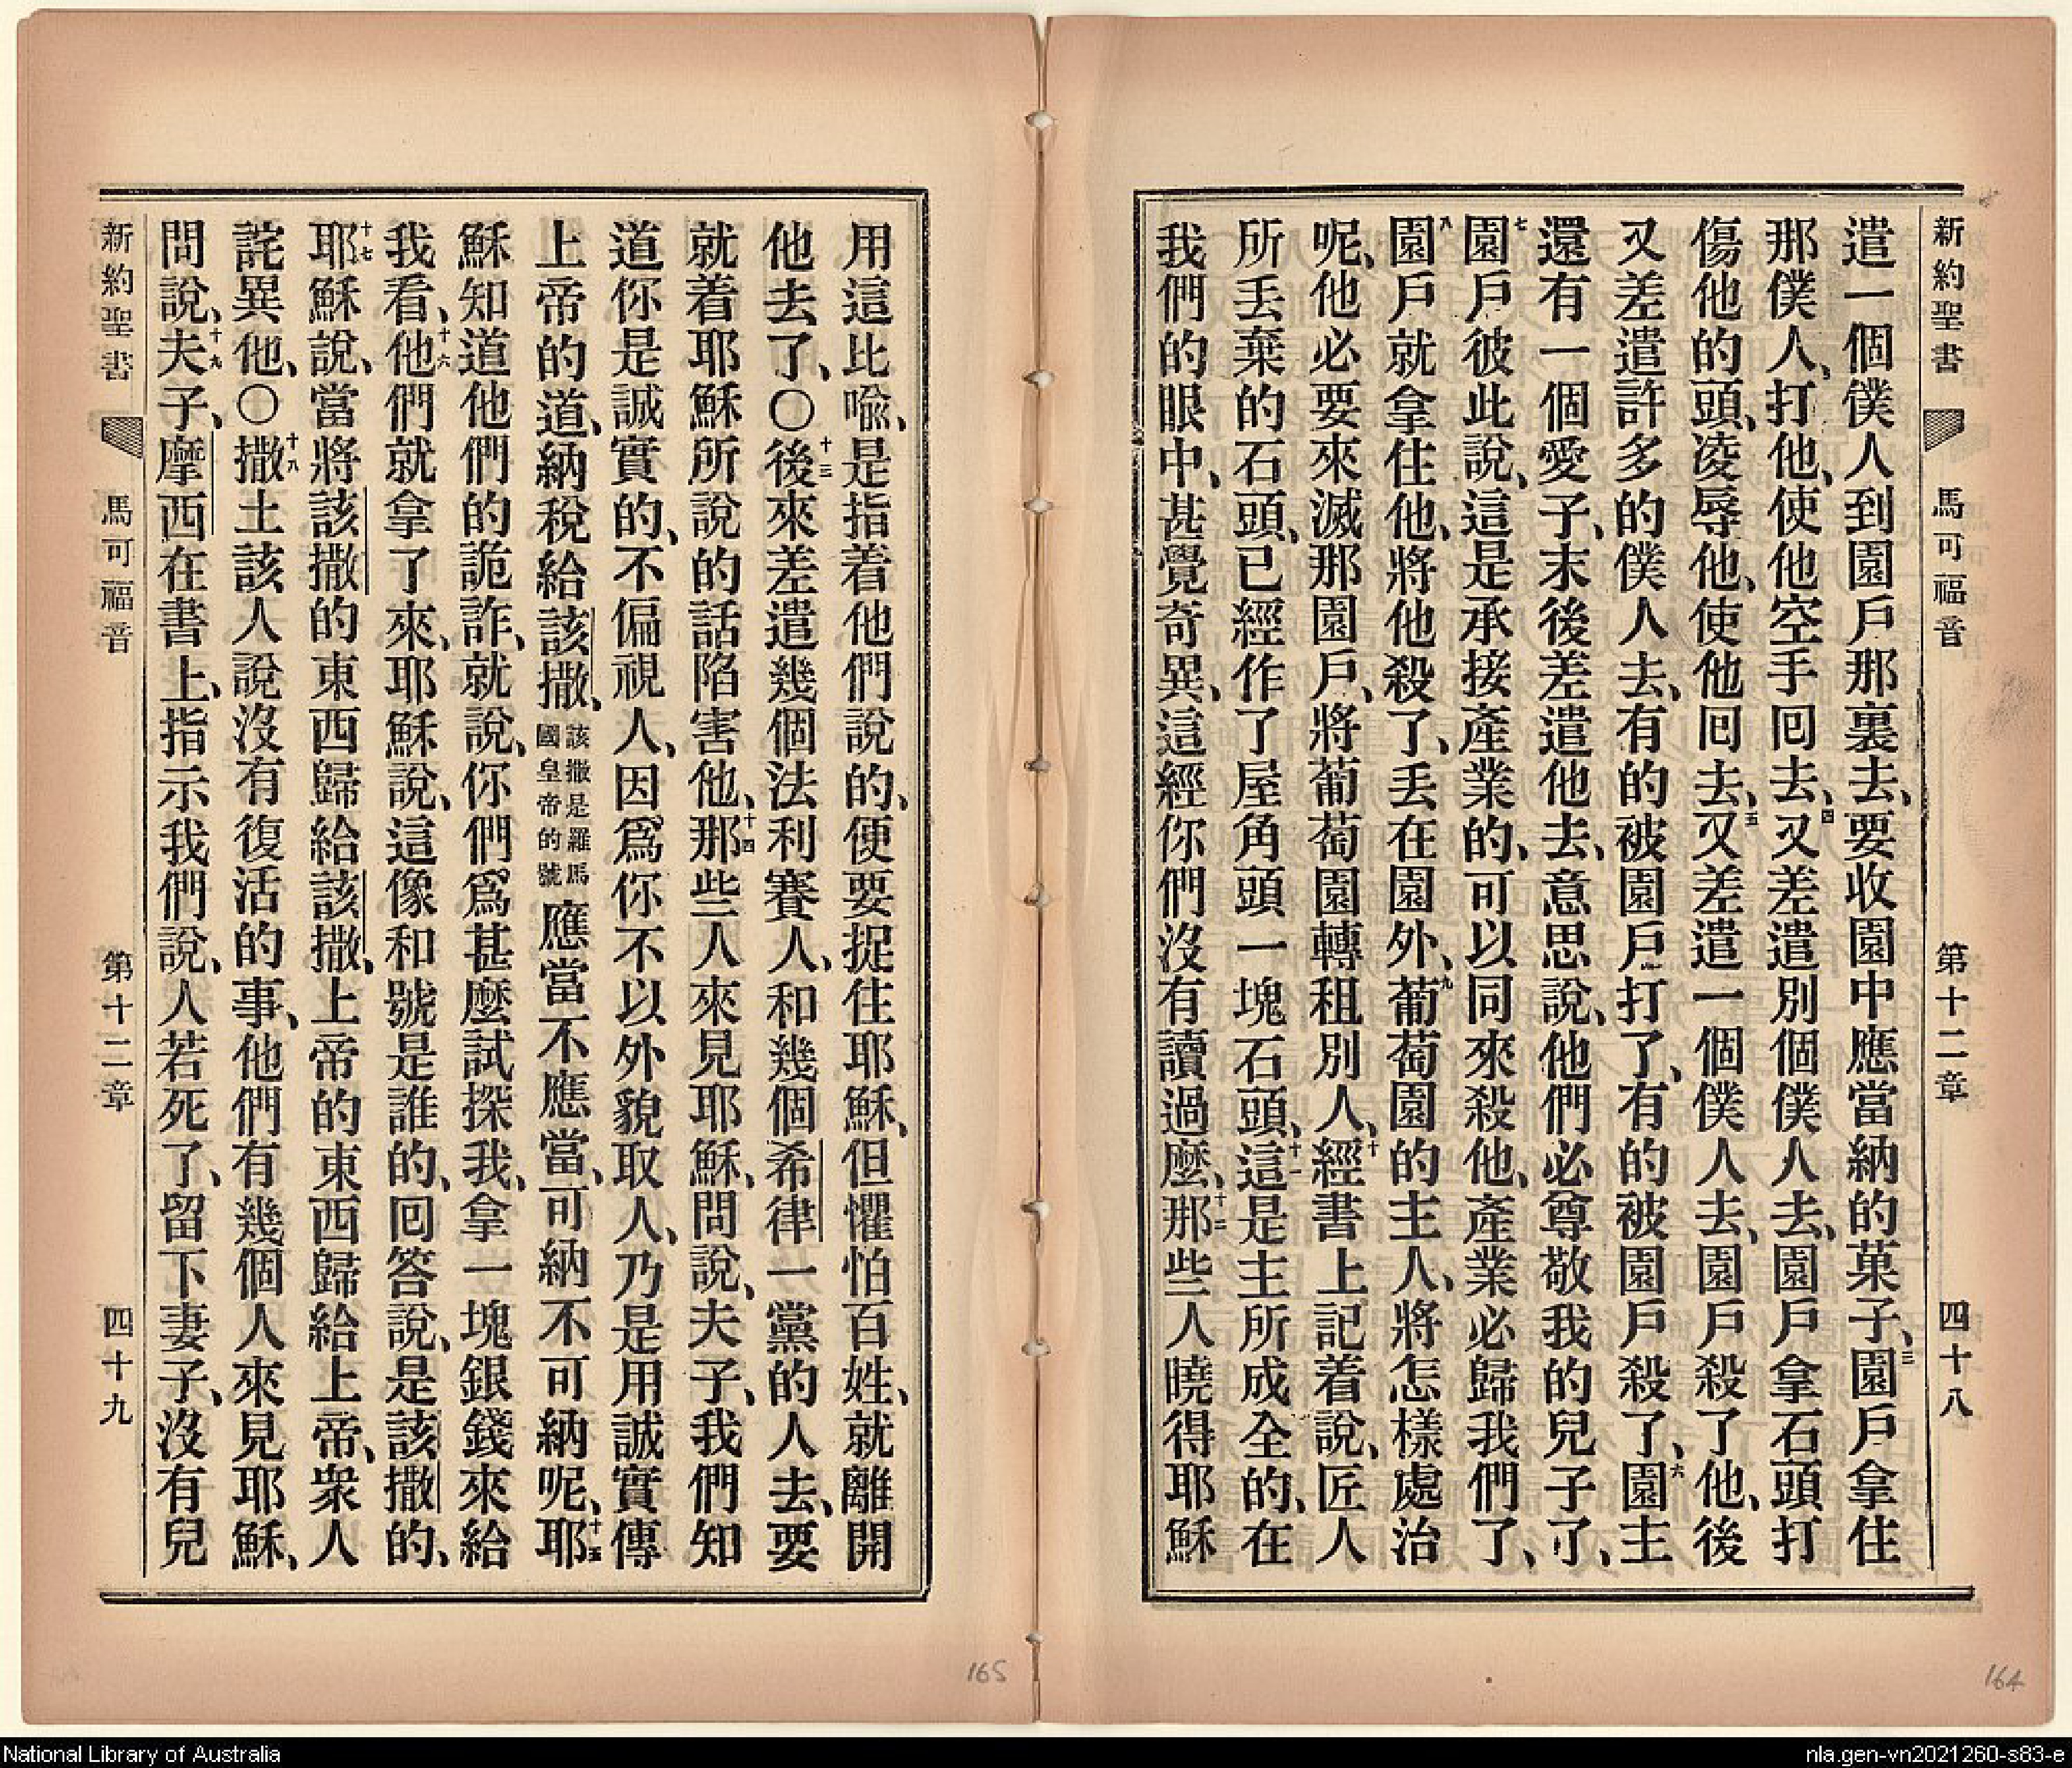 新約聖書 馬可福音 第十二章 四十八
遣一個僕人到園戶那裏去、要收園中應當納的菓子、三園戶拿住
那僕人、打他、使他空手回去、四又差遣別個僕人去、園戶拿石頭打
傷他的頭、凌辱他、使他回去、五又差遣一個僕人去、園戶殺了他、後
又差遣許多的僕人去、有的被園戶打了、有的被園戶殺了、六園主
還有一個愛子、末後差遣他去、意思說、他們必尊敬我的兒子了、
七園戶彼此說、這是承接產業的、可以同來殺他、產業必歸我們了、
八園戶就拿住他、將他殺了、丟在園外、九葡萄園的主人、將怎樣處治
呢、他必要來滅那園戶、將葡萄園轉租別人、十經書上記着說、匠人
所丟棄的石頭、已經作了屋角頭一塊石頭、十一這是主所成全的、在
我們的眼中、甚覺奇異、這經你們沒有讀過麽、十二那些人曉得耶穌
用這比喩、是指着他們說的、便要捉住耶穌、但懼怕百姓、就離開
他去了、○十三後來差遣幾個法利賽人、和幾個希律一黨的人去、要
就着耶穌所說的話陷害他、十四那些人來見耶穌、問說、夫子、我們知
道你是誠實的、不偏視人、因爲你不以外貌取人、乃是用誠實傳
上帝的道、納稅給該撒、該撒是羅馬國皇帝的號應當不應當、可納不可納呢、十五耶
穌知道他們的詭詐、就說、你們爲甚麽試探我、拿一塊銀錢來給
我看、十六他們就拿了來、耶穌說、這像和號是誰的、回答說、是該撒的、
十七耶穌說、當將該撒的東西歸給該撒、上帝的東西歸給上帝、衆人
詫異他、○十八撒土該人說沒有復活的事、他們有幾個人來見耶穌、
問說、十九夫子、摩西在書上、指示我們說、人若死了、留下妻子、沒有兒
新約聖書 馬可福音 第十二章 四十九
165
164
National Library of Australia
nla.gen-vn2021260-s83-e